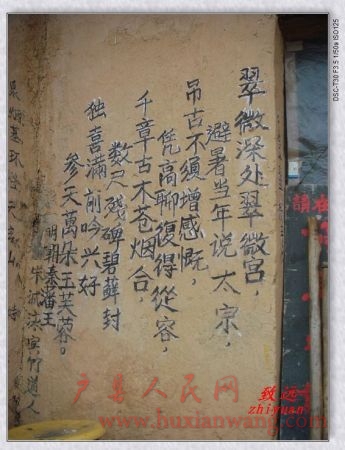 翠微深处翠微宫，
避暑当年说太宗，
吊古不须增感慨，
凭高聊复得从容，
千章古木苍烟合，
数尺残碑碧藓封
独喜满前吟兴好
参天万朵玉芙蓉。
明朝秦藩王
朱诚泳宾竹道人
户县人民网
www.huxianwang.com
致远
zhiyuan
DSC-T30 F3.5 1/50s ISO125